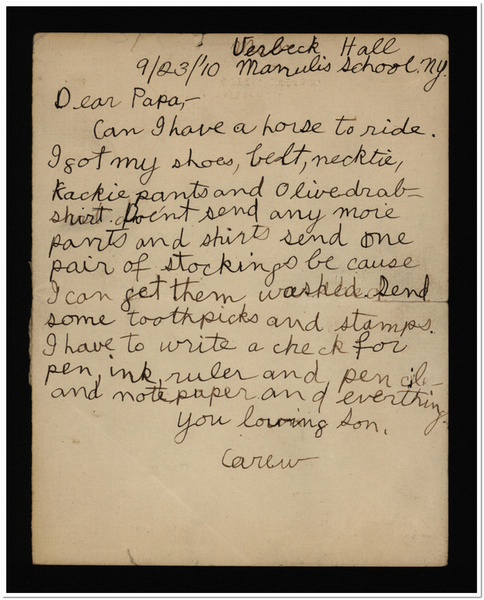 Verbeck Hall
9/23/'10 Manulis School. N.Y.
Dear Papa,-
Can I have a horse to ride.
I got my shoes, belt, necktie,
Kackie pants and Olivedrab-
shirt. Doe'nt send any more
pants and shirts send one
pair of stockings be cause
I can get them washed. Send
some toothpicks and stamps.
I have to write a check for
pen, ink, ruler and pencil-
and notepaper and everthing.
You loving Son.
Carew